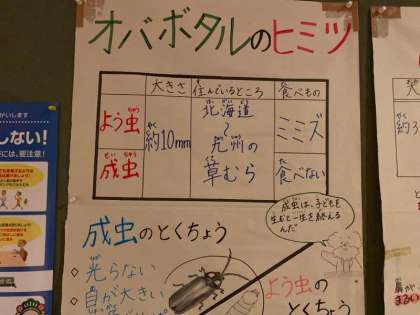 オバボタルのヒミツ
大きさ 住んでいるところ 食べもの
よう虫 約10mm 北海道〜九州の草むら ミミズ
成虫 食べない
成虫は、子どもを
生むと一生を終える
んだ
成虫のとくちょう
光らない
目が大きい
よう虫の
とくちょう
しない!
には、要注意!